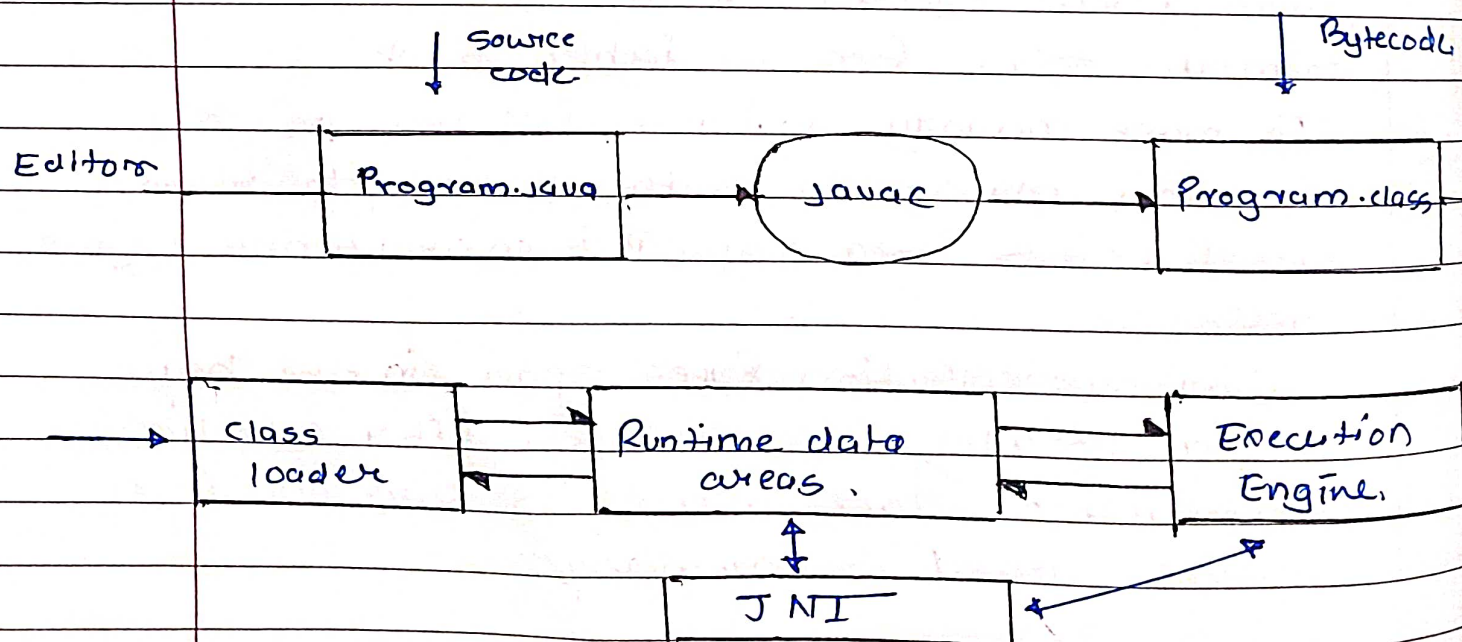 Source
code
Bytecode
Editor
Program.java
javac
Program.class
Class
loader
Runtime data
areas.
Execution
Engine.
JNI